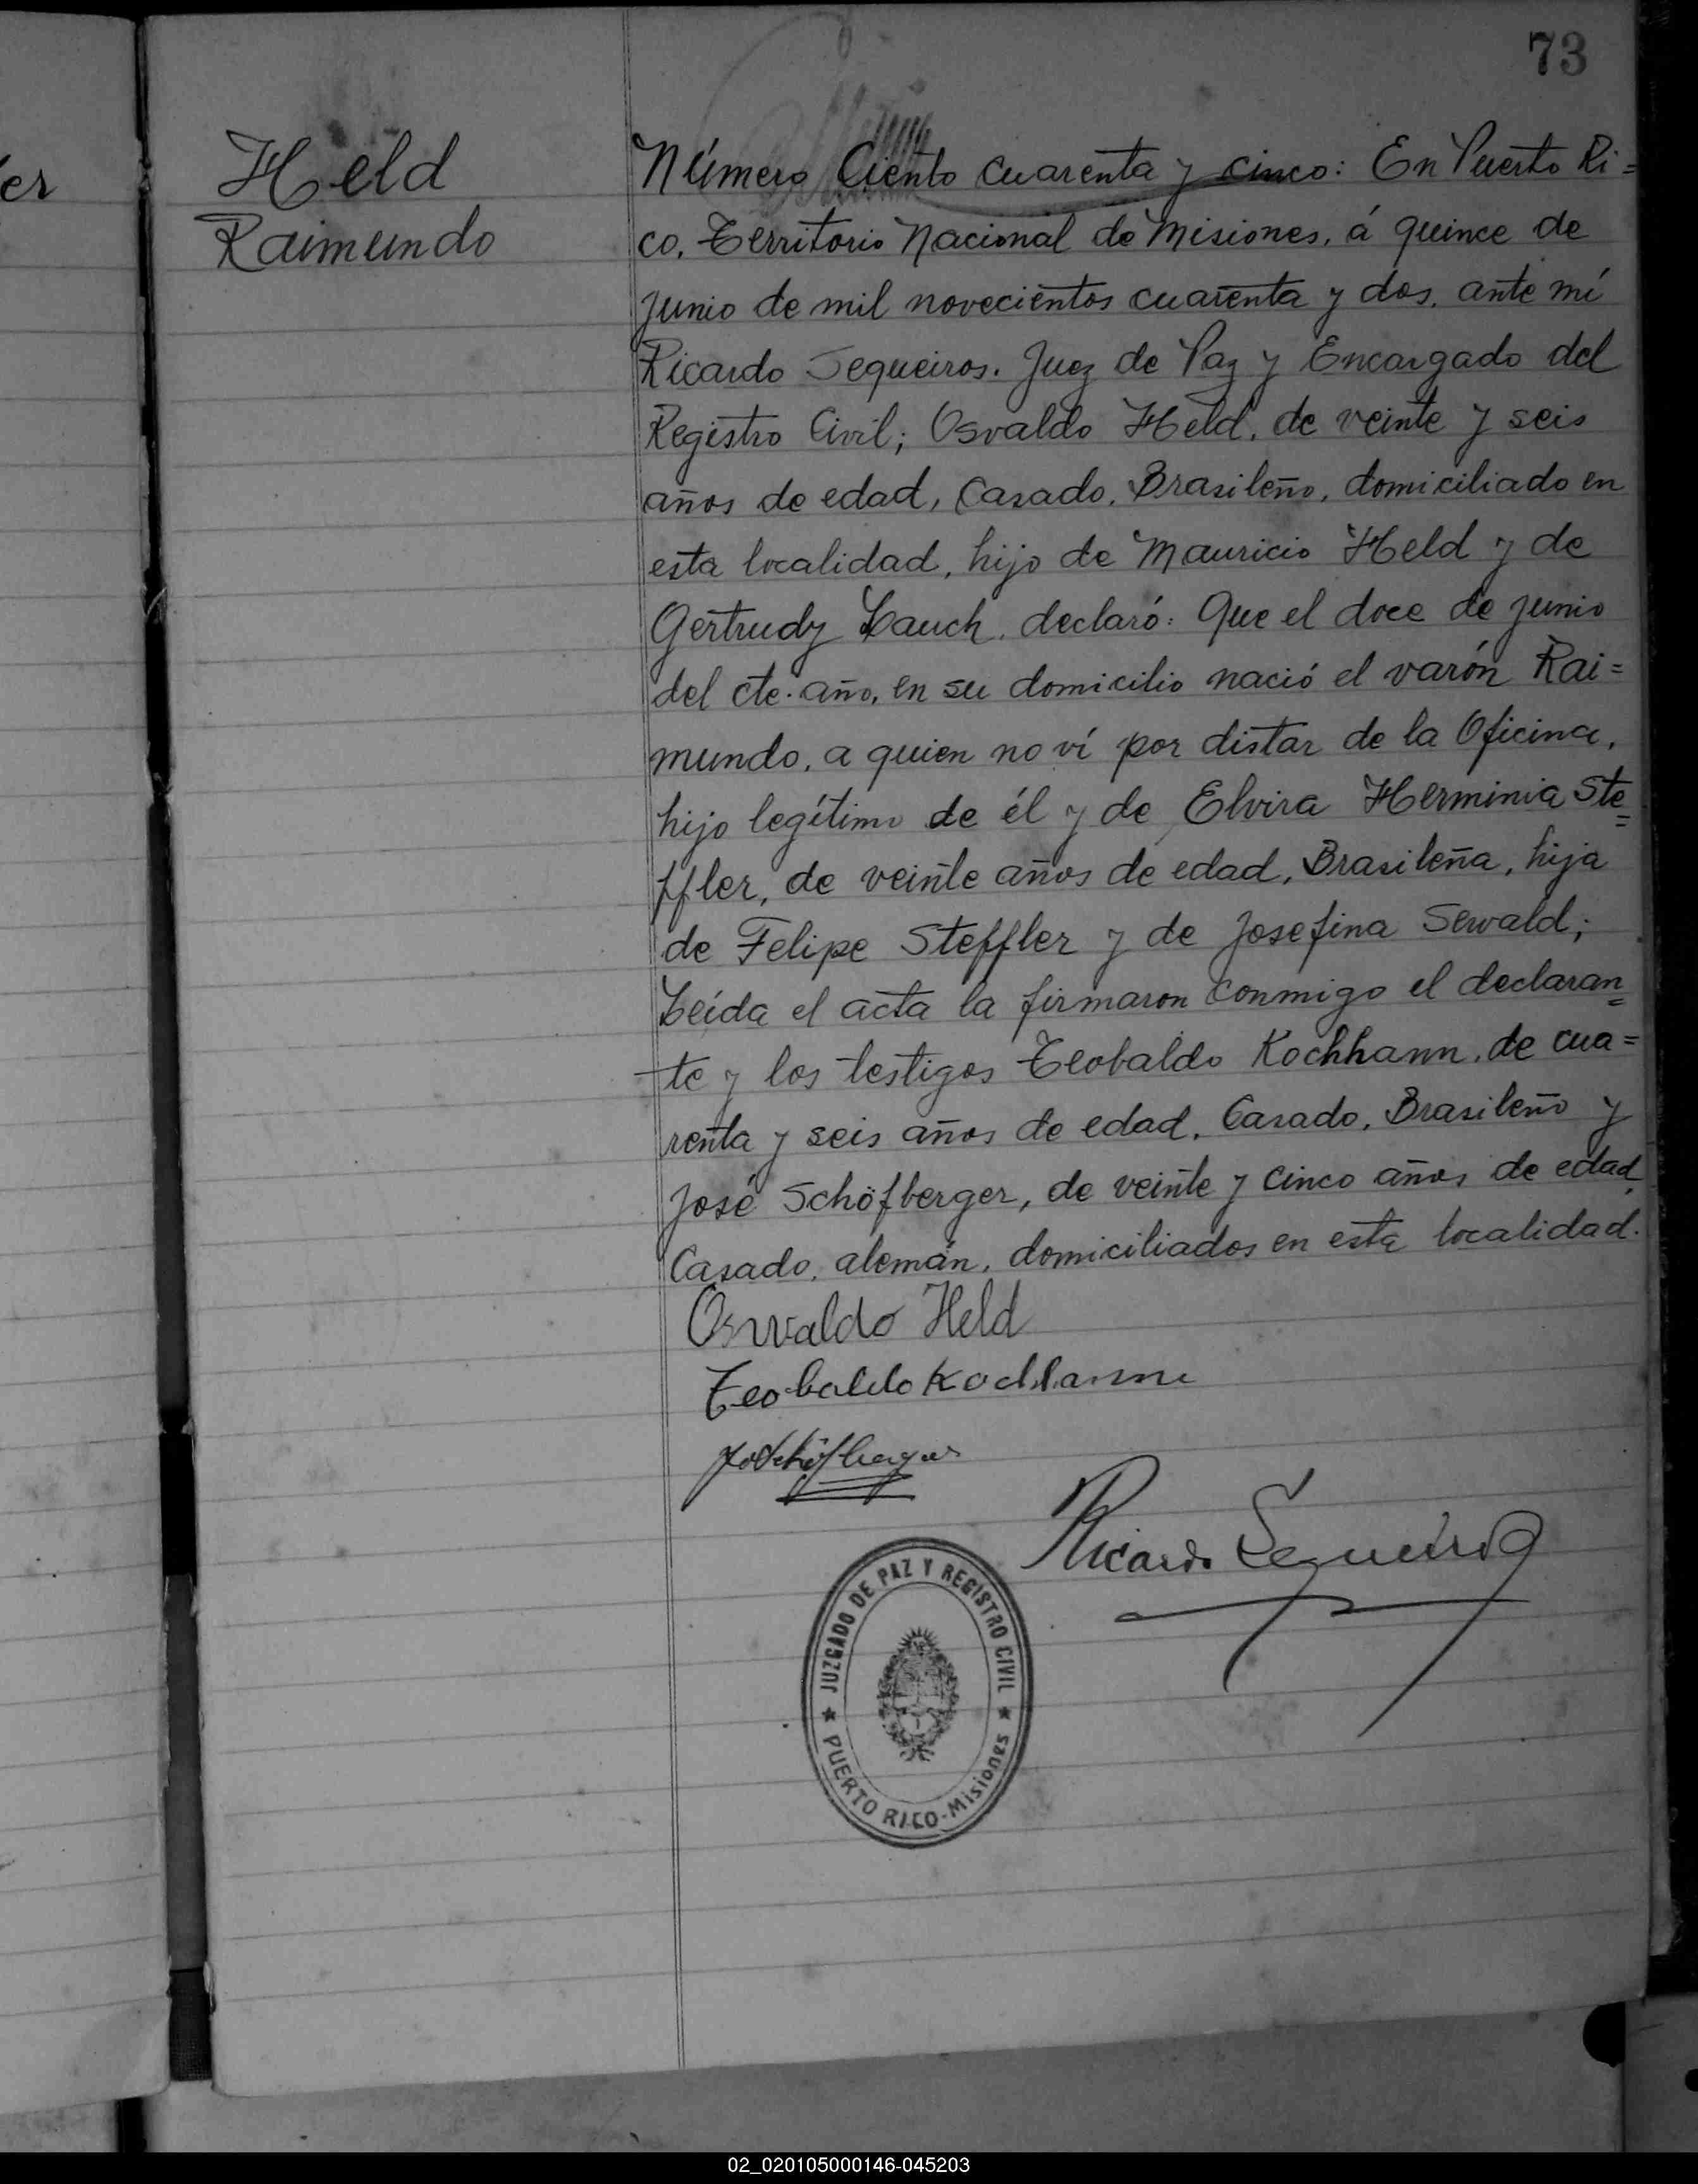 73
er
Held
Raimundo
Número Ciento cuarenta y cinco: En Puerto Ri=
co, Territorio Nacional de Misiones, á quince de
junio de mil novecientos cuarenta y dos, ante mí
Ricardo Sequeiros. Juez de Paz y Encargado del
Registro Civil; Osvaldo Held, de veinte y seis
años de edad, Casado, Brasileño, domiciliado en
esta localidad, hijo de Mauricio Held y de
Gertrudy Lauch, declaró: Que el doce de junio
del cte. año, en su domicilio nació el varón Rai=
mundo, a quien no ví por distar de la Oficina,
hijo legítimo de él y de Elvira Herminia Ste=
ffler, de veinte años de edad, Brasileña, hija
de Felipe Steffler y de Josefina Sewald;
Leída el acta la firmaron conmigo el declaran=
te y los testigos Teobaldo Kochhann, de cua=
renta y seis años de edad, Casado, Brasileño y
José Schöfberger, de veinte y cinco años de edad,
Casado, alemán, domiciliados en esta localidad.
Oswaldo Held
Teobaldo Kochhann
Ricardo Sequeiros
JUZGADO DE PAZ Y REGISTRO CIVIL
★ PUERTO RICO-Misiones ★
02_020105000146-045203